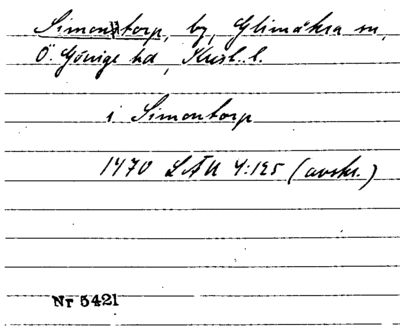 Simonstorp, by, Glimåkra sn,
Ö. Göinge hd, Krist. l.
i Simontorp
1470 LÄU 4:125 (avskr.)
Nr 5421